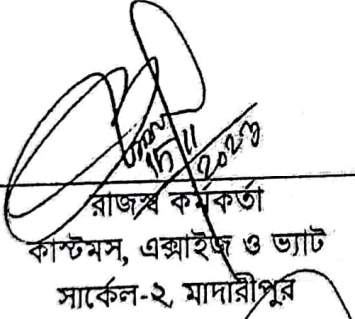 15/11
2023
রাজস্ব কর্মকর্তা
কাস্টমস, এক্সাইজ ও ভ্যাট
সার্কেল-২, মাদারীপুর